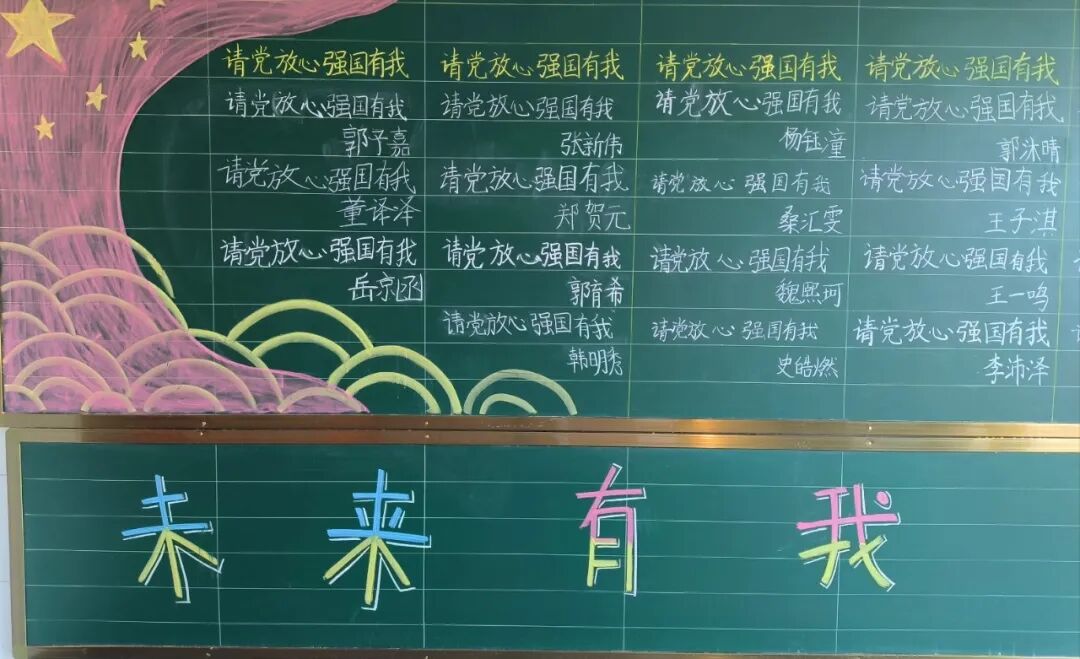 请党放心强国有我 请党放心强国有我 请党放心强国有我 请党放心强国有我
请党放心强国有我 请党放心强国有我 请党放心强国有我 请党放心强国有我
郭予嘉 张新伟 杨钰潼 郭沐晴
请党放心强国有我 请党放心强国有我 请党放心强国有我 请党放心强国有我
董译泽 郑贺元 桑汇雯 王子淇
请党放心强国有我 请党放心强国有我 请党放心强国有我 请党放心强国有我
岳京函 郭育希 魏熙珂 王一鸣
请党放心强国有我 请党放心强国有我 请党放心强国有我
韩明秀 史皓燃 李沛泽
未来有我